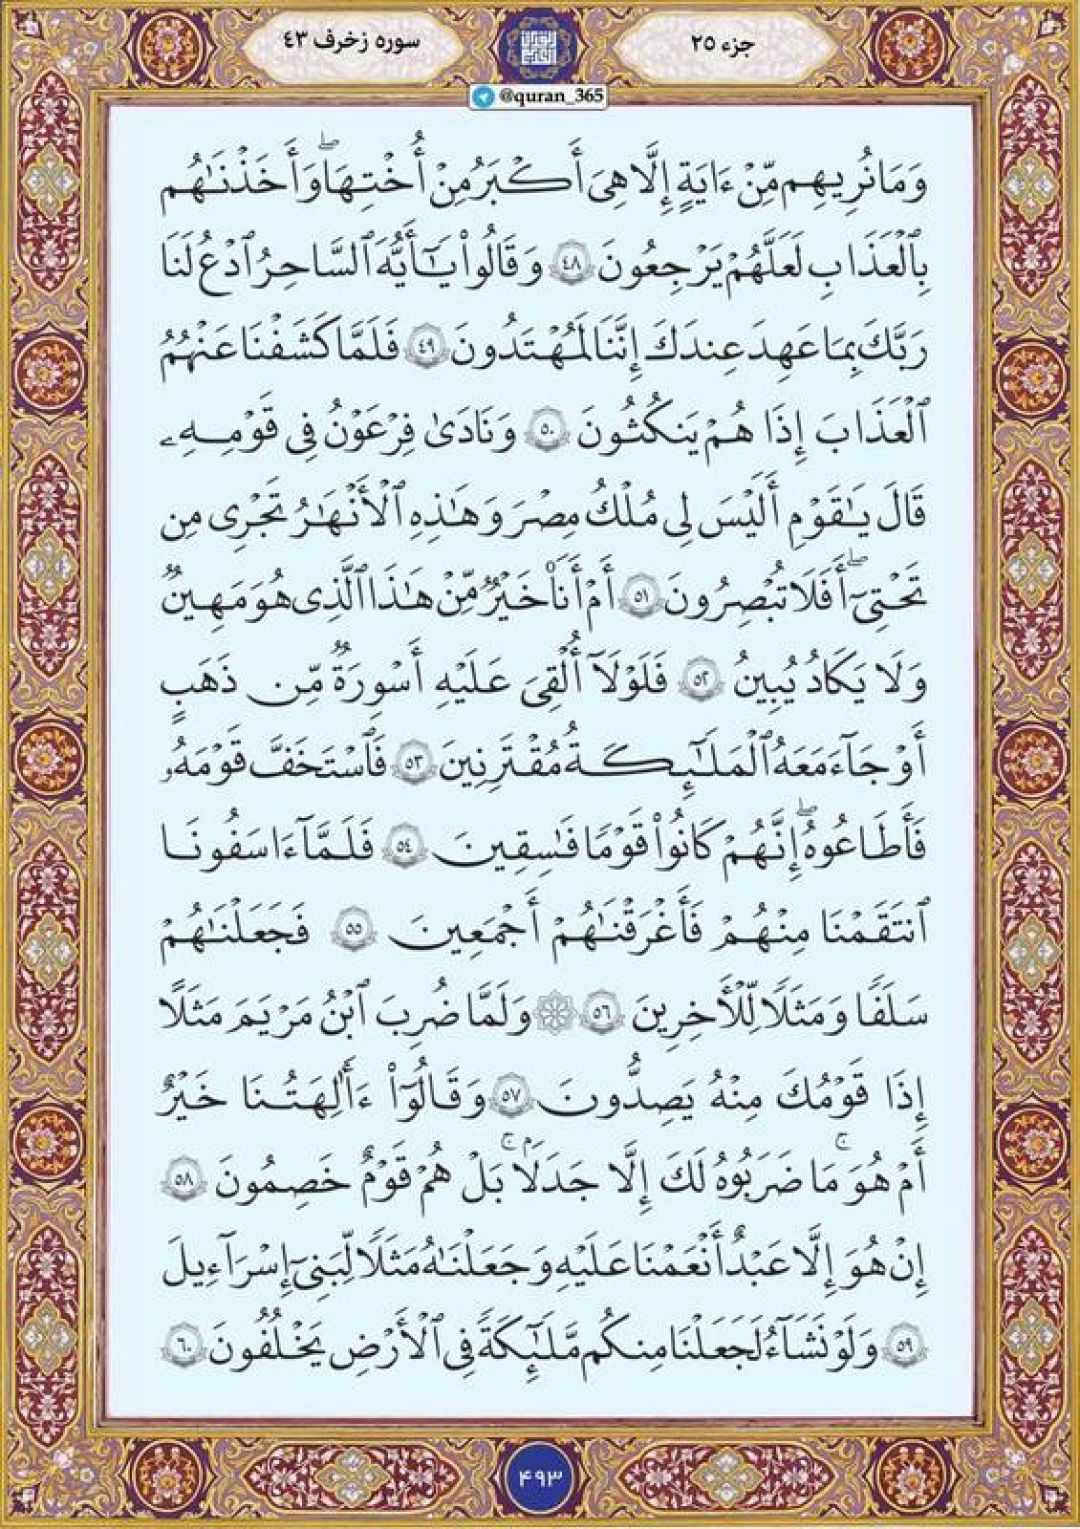 جزء ۲۵
سوره زخرف ۴۳
@quran_365
وَمَا نُرِيهِم مِّنْ ءَايَةٍ إِلَّا هِىَ أَكْبَرُ مِنْ أُخْتِهَا ۖ وَأَخَذْنَٰهُم
بِٱلْعَذَابِ لَعَلَّهُمْ يَرْجِعُونَ ٤٨ وَقَالُوا۟ يَٰٓأَيُّهَ ٱلسَّاحِرُ ٱدْعُ لَنَا
رَبَّكَ بِمَا عَهِدَ عِندَكَ إِنَّنَا لَمُهْتَدُونَ ٤٩ فَلَمَّا كَشَفْنَا عَنْهُمُ
ٱلْعَذَابَ إِذَا هُمْ يَنكُثُونَ ٥٠ وَنَادَىٰ فِرْعَوْنُ فِى قَوْمِهِۦ
قَالَ يَٰقَوْمِ أَلَيْسَ لِى مُلْكُ مِصْرَ وَهَٰذِهِ ٱلْأَنْهَٰرُ تَجْرِى مِن
تَحْتِىٓ ۖ أَفَلَا تُبْصِرُونَ ٥١ أَمْ أَنَا۠ خَيْرٌ مِّنْ هَٰذَا ٱلَّذِى هُوَ مَهِينٌ
وَلَا يَكَادُ يُبِينُ ٥٢ فَلَوْلَآ أُلْقِىَ عَلَيْهِ أَسْوِرَةٌ مِّن ذَهَبٍ
أَوْ جَآءَ مَعَهُ ٱلْمَلَٰٓئِكَةُ مُقْتَرِنِينَ ٥٣ فَٱسْتَخَفَّ قَوْمَهُۥ
فَأَطَاعُوهُ ۖ إِنَّهُمْ كَانُوا۟ قَوْمًا فَٰسِقِينَ ٥٤ فَلَمَّآ ءَاسَفُونَا
ٱنتَقَمْنَا مِنْهُمْ فَأَغْرَقْنَٰهُمْ أَجْمَعِينَ ٥٥ فَجَعَلْنَٰهُمْ
سَلَفًا وَمَثَلًا لِّلْءَاخِرِينَ ٥٦ ۞ وَلَمَّا ضُرِبَ ٱبْنُ مَرْيَمَ مَثَلًا
إِذَا قَوْمُكَ مِنْهُ يَصِدُّونَ ٥٧ وَقَالُوٓا۟ ءَأَٰلِهَتُنَا خَيْرٌ
أَمْ هُوَ ۚ مَا ضَرَبُوهُ لَكَ إِلَّا جَدَلًۢا ۚ بَلْ هُمْ قَوْمٌ خَصِمُونَ ٥٨
إِنْ هُوَ إِلَّا عَبْدٌ أَنْعَمْنَا عَلَيْهِ وَجَعَلْنَٰهُ مَثَلًا لِّبَنِىٓ إِسْرَٰٓءِيلَ
٥٩ وَلَوْ نَشَآءُ لَجَعَلْنَا مِنكُم مَّلَٰٓئِكَةً فِى ٱلْأَرْضِ يَخْلُفُونَ ٦٠
۴۹۳